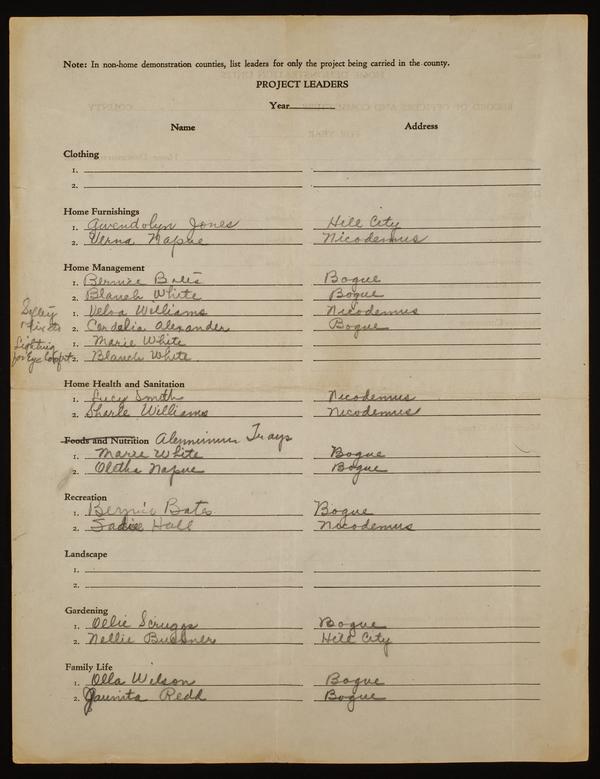 Note: In non-home demonstration counties, list leaders for only the project being carried in the county.
PROJECT LEADERS
Year
Name Address
Clothing
1.
2.
Home Furnishings
1. Gwendolyn Jones Hill City
2. Verna Napue Nicodemus
Home Management
1. Bernice Bates Bogue
2. Blanch White Bogue
Safety
1. Velva Williams Nicodemus
2. Cordelia Alexander Bogue
Lighting
1. Marie White
for Eye Comfort 2. Blanch White
Home Health and Sanitation
1. Lucy Smith Nicodemus
2. Sharle Williams Nicodemus
Foods and Nutrition Alumninum Trays
1. Marie White Bogue
2. Oletha Napue Bogue
Recreation
1. Bernice Bates Bogue
2. Sadie Hall Nicodemus
Landscape
1.
2.
Gardening
1. Ollie Scruggs Bogue
2. Nellie Buckner Hill City
Family Life
1. Olla Wilson Bogue
2. Jaunita Redd Bogue